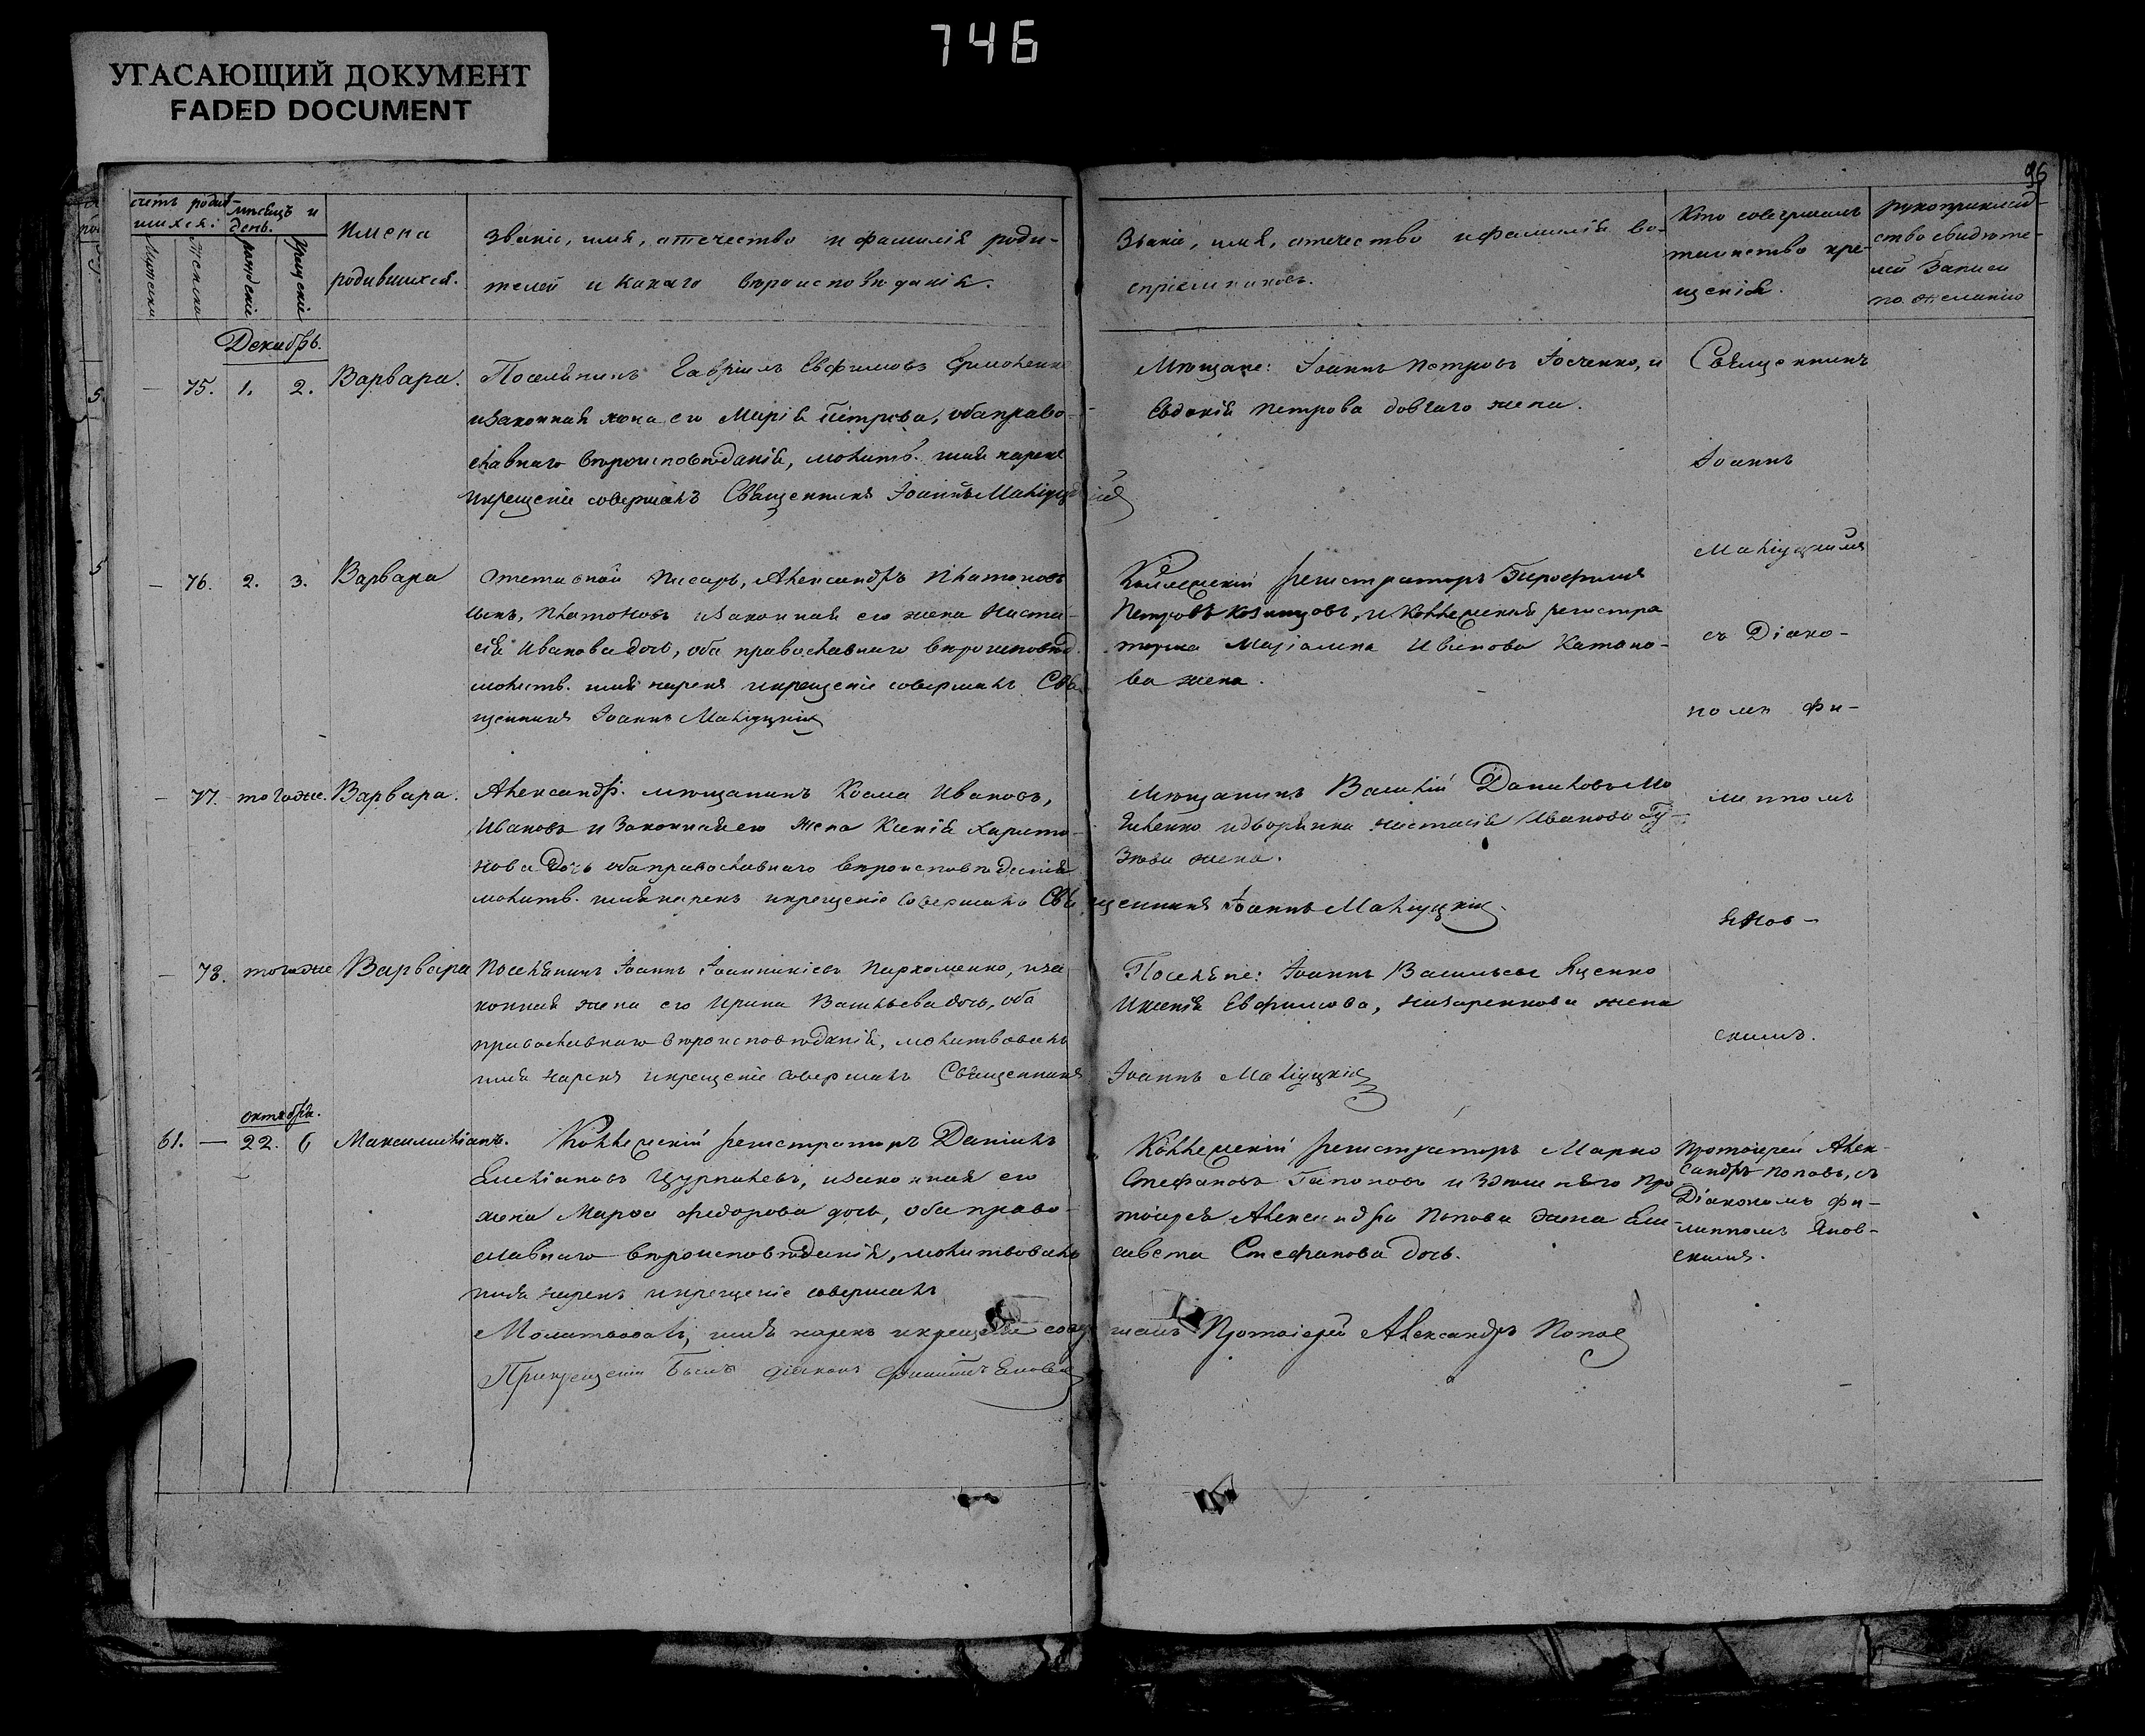 746
УГАСАЮЩИЙ ДОКУМЕНТ
FADED DOCUMENT
96
счетъ родив-
шихся:
мѣсяцъ и
день.
Мужеска
Женска
рожденіе
крещеніе
Имена
родившихся.
Званіе, имя, отечество и фамилія роди-
телей и какаго вѣроисповѣданія.
Званіе, имя, отечество и фамилія во-
спріемниковъ.
Кто совершалъ
таинство кре-
щенія.
рукоприклад-
ство свидѣте-
лей записи
по желанію
Декабрь.
— 75. 1. 2. Варвара.
Поселянинъ Гавріилъ Евфимовъ Ермоленко
и законная жена его Марія Петрова, оба право-
славнаго вѣроисповѣданія, молитв. имя нарекъ
и крещеніе совершалъ Священникъ Іоаннъ
Мѣщане: Іоаннъ Петровъ и
Евдокія Петрова Довгаго жена.
Священникъ
Іоаннъ
съ Діако-
номъ Фи-
липпомъ
Янов-
скимъ.
— 76. 2. 3. Варвара
Отставной Писарь, Александръ Платоновъ
сынъ, Платоновъ и законная его жена Наста-
сія Иванова дочь, оба православнаго вѣроисповѣд.
молитв. имя нарекъ и крещеніе совершалъ Свя-
щенникъ Іоаннъ
Коллежскій регистраторъ
Петровъ и Коллежскій регистра
торша Ивановa Катано-
ва жена.
— 77. тогоже. Варвара.
Александр. мѣщанинъ Косма Ивановъ,
Ивановъ и законная его жена Ксенія Харито-
нова дочь оба православнаго вѣроисповѣданія
молитв. имя нарекъ и крещеніе совершалъ Священникъ Іоаннъ
Мѣщанинъ Василій Даниловъ
и дворянка Настасія Иванова
жена.
— 78. тогоже Варвара
Поселянинъ Іоаннъ Іоанникіевъ Пархоменко, и за
конная жена его Ирина Васильева дочь, оба
православнаго вѣроисповѣданія, молитвовалъ
имя нарекъ и крещеніе совершалъ Священникъ Іоаннъ
Поселяне: Іоаннъ Васильевъ Яценко
и Ксенія Евфимова, Назаренкова жена
октября.
61. — 22. 6 Максимиліанъ.
Коллежскій регистраторъ Даніилъ
Емиліановъ и законная его
жена Марѳа Федорова дочь, оба право-
славнаго вѣроисповѣданія, молитвовалъ
имя нарекъ и крещеніе совершалъ
Молитвовалъ, имя нарекъ и крещеніе совершалъ Протоіерей Александръ Попов
При крещеніи былъ діаконъ Филиппъ Яновскій
Коллежскій регистраторъ Марко
Стефановъ Гапоновъ и здѣшняго Про
тоіерея Александра Попова жена Ели-
савета Стефанова дочь.
Протоіерей Алек-
сандръ Поповъ, съ
Діакономъ Фи-
липпомъ Янов-
скимъ.